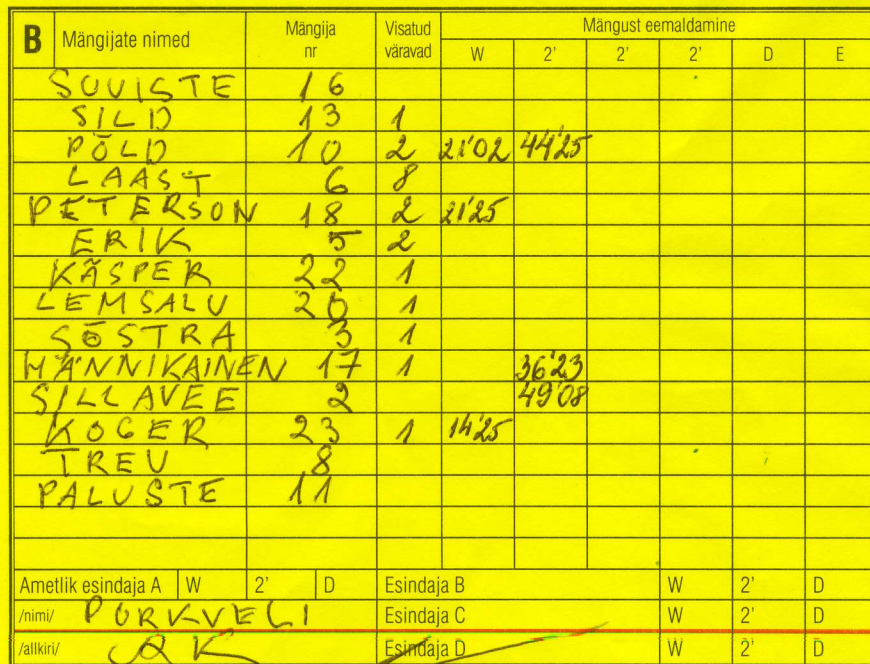 B Mängijate nimed Mängija nr Visatud väravad Mängust eemaldamine
W 2' 2' 2' D E
SUVISTE 16
SILD 13 1
PÕLD 10 2 21'02 44'25
LAAST 6 8
PETERSON 18 2 21'25
ERIK 5 2
KÄSPER 22 1
LEMSALU 20 1
SÕSTRA 3 1
MÄNNIKAINEN 17 1 36'23
SILLAVEE 2 49'08
KOGER 23 1 14'25
TREU 8
PALUSTE 11
Ametlik esindaja A W 2' D Esindaja B W 2' D
/nimi/ PURKVELI Esindaja C W 2' D
/allkiri/ Esindaja D W 2' D